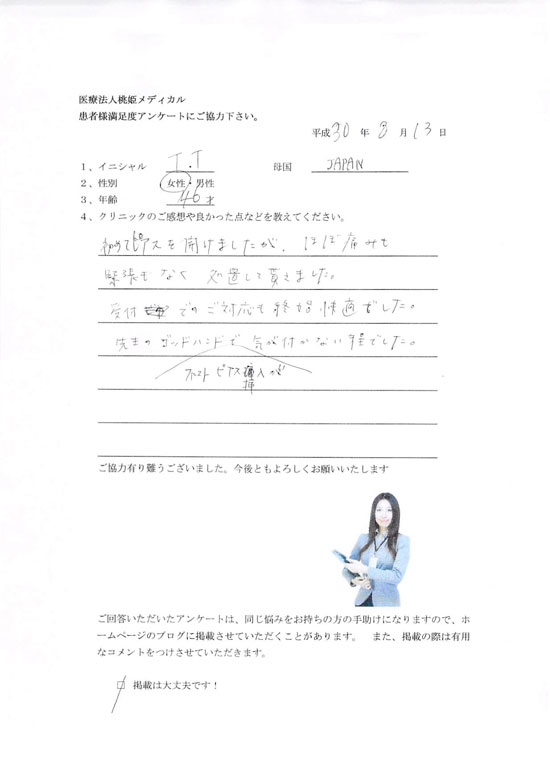 医療法人桃姫メディカル
患者様満足度アンケートにご協力下さい。
平成30年8月13日
1、イニシャル T.T 母国 JAPAN
2、性別 女性・男性
3、年齢 46才
4、クリニックのご感想や良かった点などを教えてください。
初めてピアスを開けましたが、ほぼ痛みも
緊張もなく処置して貰えました。
受付でのご対応も終始快適でした。
先生のゴッドハンドで気が付かない程でした。
ファーストピアス挿入が
ご協力有り難うございました。今後ともよろしくお願いいたします
ご回答いただいたアンケートは、同じ悩みをお持ちの方の手助けになりますので、ホ
ームページのブログに掲載させていただくことがあります。 また、掲載の際は有用
なコメントをつけさせていただきます。
□ 掲載は大丈夫です！